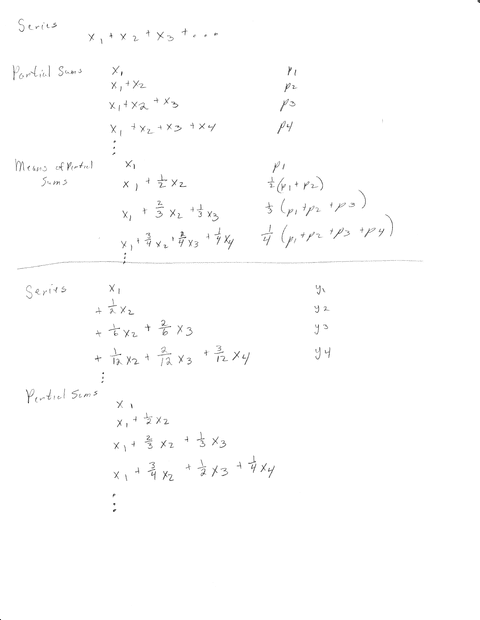 Series
x₁ + x₂ + x₃ + ...
Partial Sums x₁ p₁
x₁+x₂ p₂
x₁+x₂+x₃ p₃
x₁ + x₂ + x₃ + x₄ p₄
⋮
Means of Partial Sums x₁ p₁
x₁ + ½x₂ ½(p₁+p₂)
x₁ + ⅔x₂ + ⅓x₃ ⅓(p₁+p₂+p₃)
x₁ + ¾x₂ + 2/4x₃ + ¼x₄ ¼(p₁+p₂+p₃+p₄)
⋮
Series x₁ y₁
+ ½x₂ y₂
+ 1/6x₂ + 2/6x₃ y₃
+ 1/12x₂ + 2/12x₃ + 3/12x₄ y₄
⋮
Partial Sums
x₁
x₁ + ½x₂
x₁ + ⅔x₂ + ⅓x₃
x₁ + ¾x₂ + ½x₃ + ¼x₄
⋮